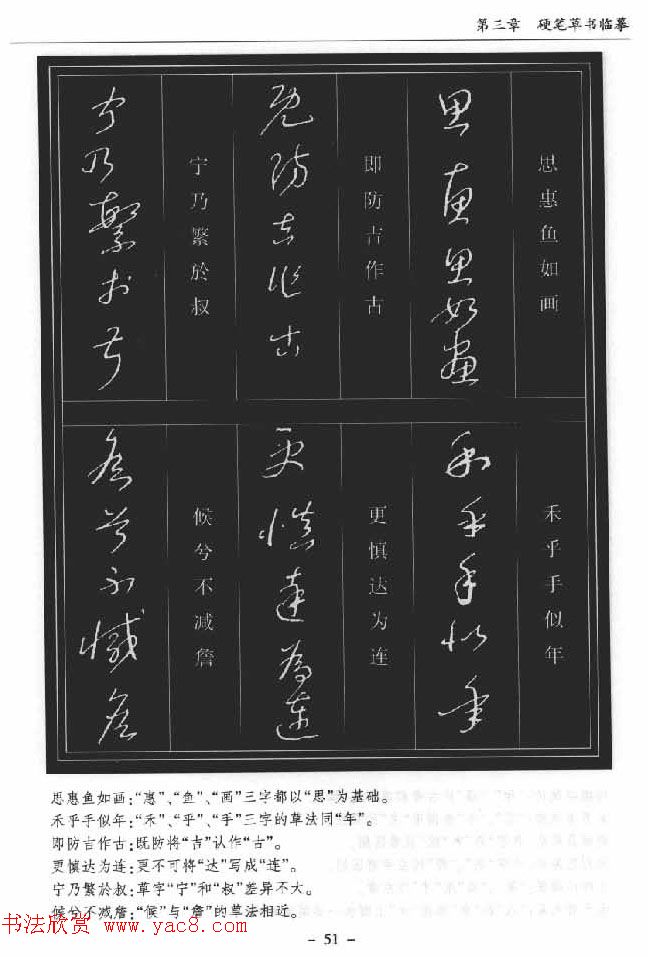 第三章 硬笔草书临摹
思惠鱼如画
思惠鱼如画
即防吉作古
既防吉作古
宁乃繁於叔
宁乃繁於叔
禾乎手似年
禾乎手似年
更慎达为连
更慎达为连
候兮不减詹
候兮不减詹
思惠鱼如画:“惠”、“鱼”、“画”三字都以“思”为基础。
禾乎手似年:“禾”、“乎”、“手”三字的草法同“年”。
即防吉作古:既防将“吉”认作“古”。
更慎达为连:更不可将“达”写成“连”。
宁乃繁於叔:草字“宁”和“叔”差异不大。
候兮不减詹:“候”与“詹”的草法相近。
书法欣赏 www.yac8.com
- 51 -